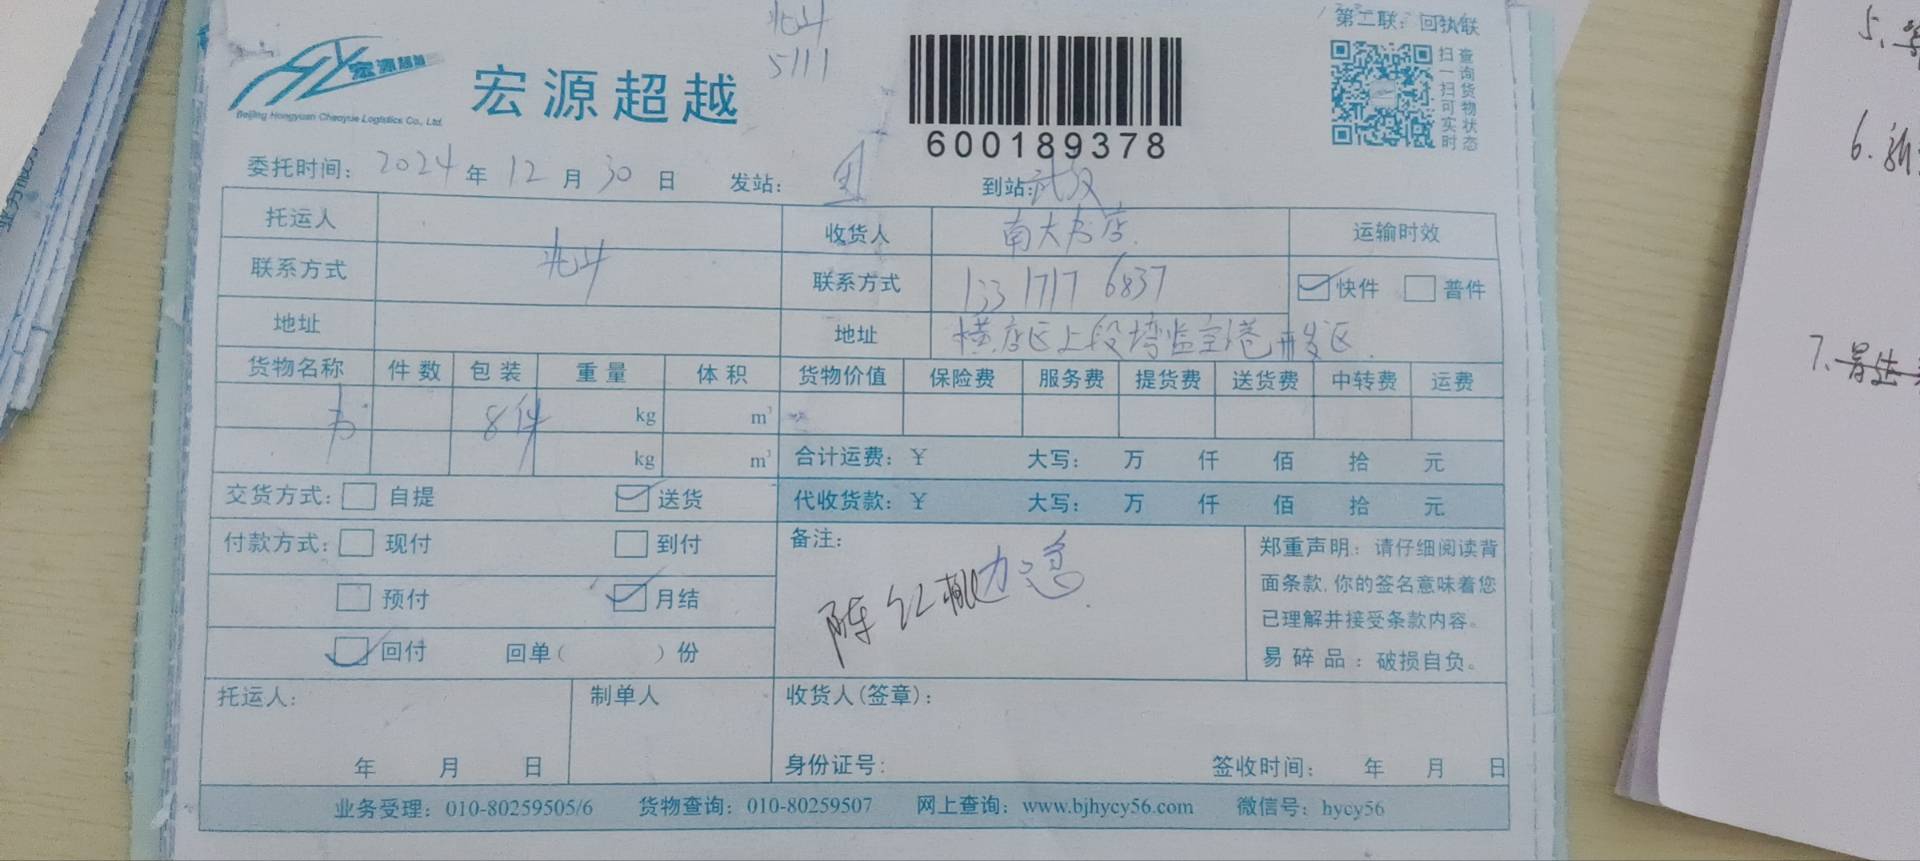 北斗
5111
第二联：回执联
宏源超越
Beijing Hongyuan Chaoyue Logistics Co., Ltd.
宏源超越
600189378
扫一扫可实时
查询货物状态
委托时间：2024年12月30日 发站： 到站：武汉
托运人 收货人 南大书店 运输时效
联系方式 北斗 联系方式 133 1717 6837 快件 普件
地址 地址 横店区上段湾临空港开发区
货物名称 件数 包装 重量 体积 货物价值 保险费 服务费 提货费 送货费 中转费 运费
书 8件 kg m³
kg m³ 合计运费：¥ 大写： 万 仟 佰 拾 元
交货方式： 自提 送货 代收货款：¥ 大写： 万 仟 佰 拾 元
付款方式： 现付 到付 备注：
预付 月结
回付 回单（ ）份
陈红
郑重声明：请仔细阅读背
面条款,你的签名意味着您
已理解并接受条款内容。
易碎品：破损自负。
托运人： 制单人 收货人(签章)：
年 月 日 身份证号： 签收时间： 年 月 日
业务受理：010-80259505/6 货物查询：010-80259507 网上查询：www.bjhycy56.com 微信号：hycy56
5.
6.
7.